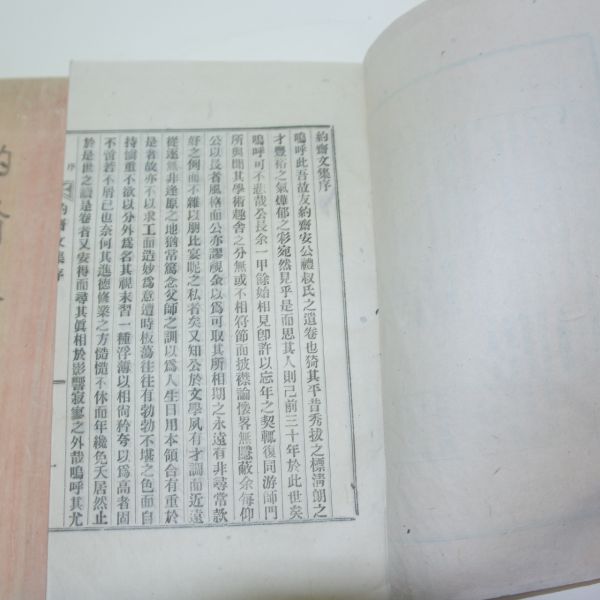 約齋文集序
嗚呼此吾故友約齋安公禮叔氏之遺卷也猗其平昔秀拔之標淸朗之
才豐裕之氣燁郁之彩宛然見乎是而思其人則已前三十年於此世矣
嗚呼可不悲哉公長余一甲餘始相見卽許以忘年之契輒復同游師門
所與聞其學術趣舍之分無或不相符節面披襟論懷畧無隱蔽余每仰
公以長者風格而公亦謬視余以爲可取其所相期之永遠有非尋常款
好之例而不雜以朋比宴昵之私者矣又知公於文學夙有才調而近遠
從遊無非逢原之地猶常篤念父師之訓以爲人生日用本領合有重於
是者故亦不以求工而造妙爲意遭時板蕩往往有勃勃不堪之色而自
持愼重不欲以分外爲名其視末習一種浮薄以相尙矜夸以爲高者固
不啻若不屑已也奈何其進德修業之方慥慥不休而年纔免夭居然止
於是世之讀是卷者又安得而尋其眞相於影響寂寥之外哉嗚呼其尤
序
約齋文集序
約齋